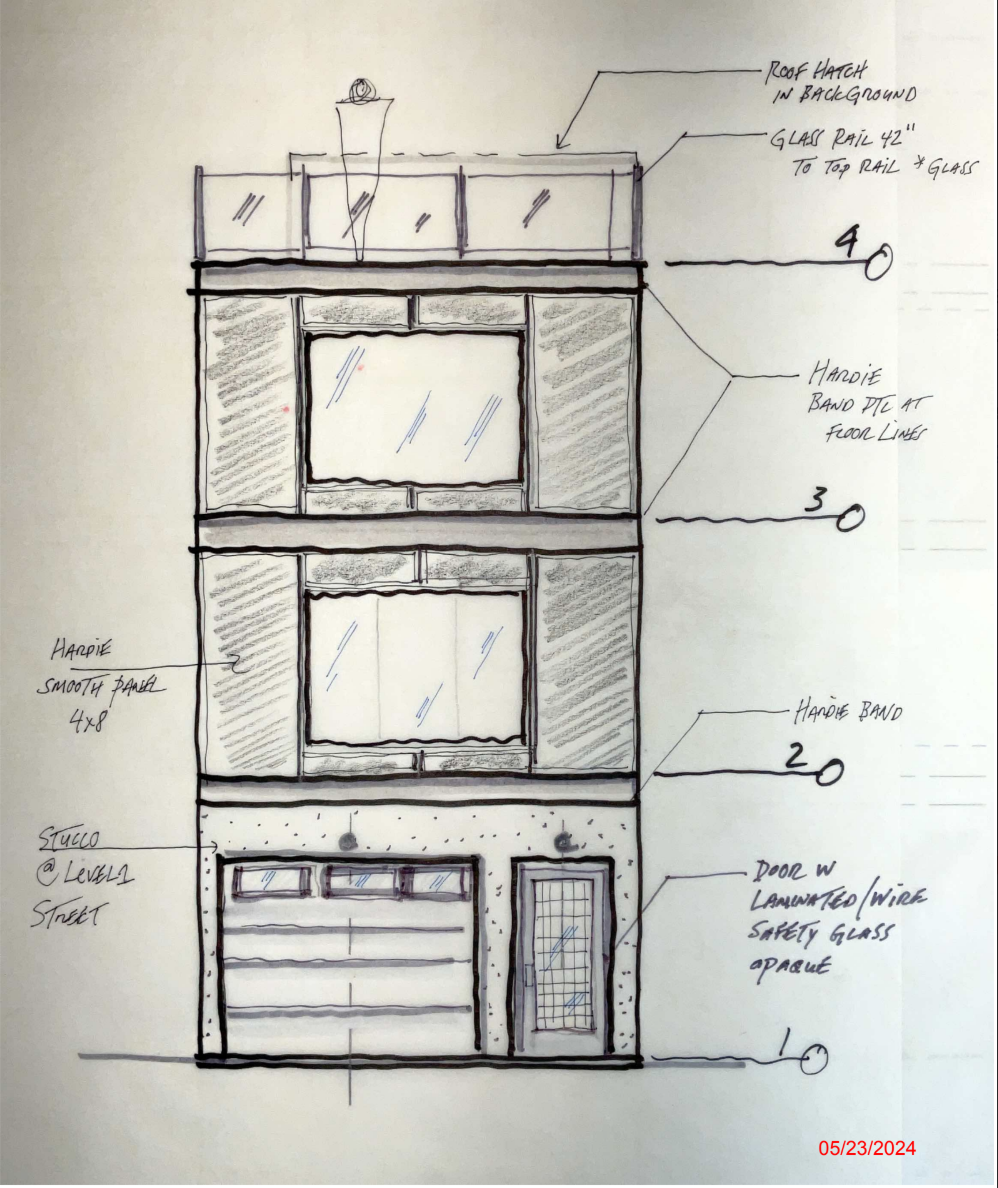 ROOF HATCH
IN BACKGROUND
GLASS RAIL 42"
TO TOP RAIL * GLASS
4
HARDIE
BAND DTL AT
FLOOR LINES
3
HARDIE
SMOOTH PANEL
4x8
HARDIE BAND
2
STUCCO
@ LEVEL1
STREET
DOOR W
LAMINATED/WIRE
SAFETY GLASS
OPAQUE
1
05/23/2024